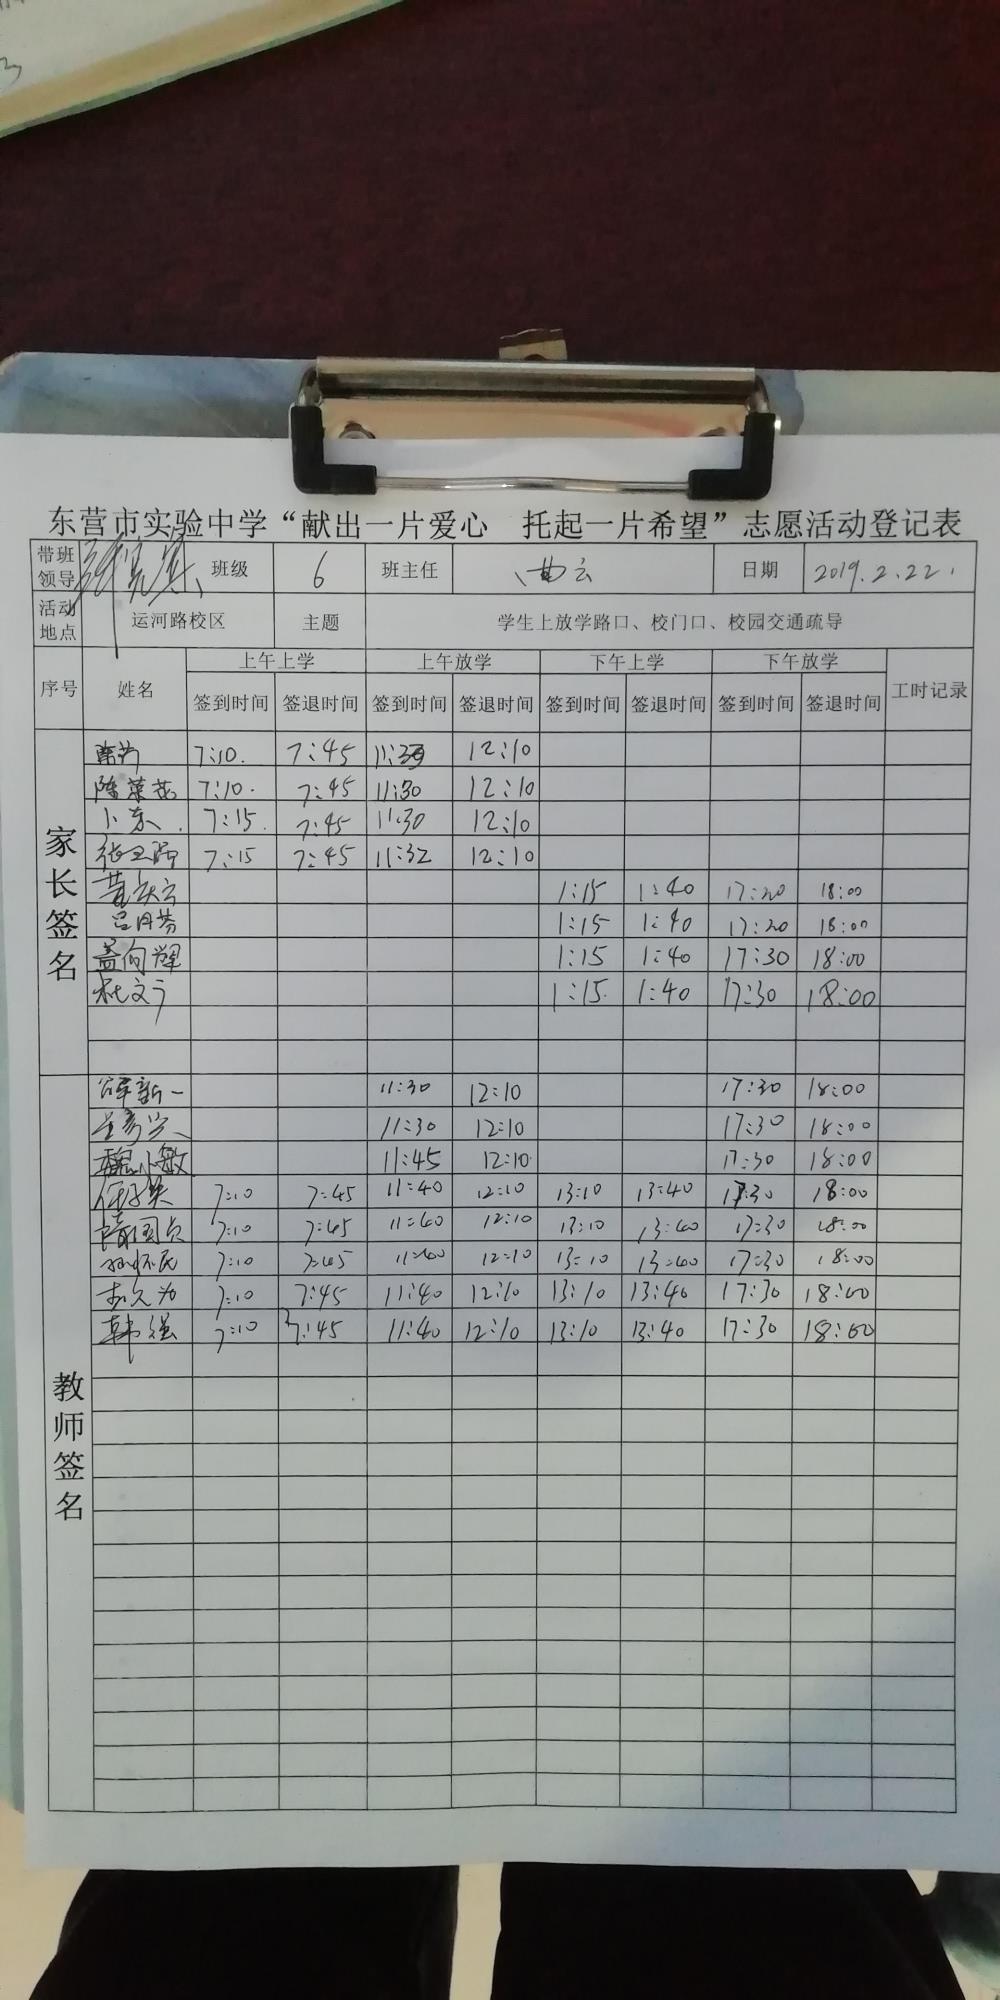 东营市实验中学“献出一片爱心 托起一片希望”志愿活动登记表
带班领导 班级 6 班主任 曲云 日期 2019.2.22.
活动地点 运河路校区 主题 学生上放学路口、校门口、校园交通疏导
序号 姓名 上午上学 上午放学 下午上学 下午放学 工时记录
签到时间 签退时间 签到时间 签退时间 签到时间 签退时间 签到时间 签退时间
家长签名
7:10. 7:45 11:30 12:10
陈 7:10. 7:45 11:30 12:10
卜东 7:15. 7:45 11:30 12:10
张 7:15 7:45 11:32 12:10
1:15 1:40 17:20 18:00
吕月芬 1:15 1:40 17:20 18:00
盖向辉 1:15 1:40 17:30 18:00
杜文 1:15. 1:40 17:30 18:00
教师签名
薛新一 11:30 12:10 17:30 18:00
11:30 12:10 17:30 18:00
魏小敏 11:45 12:10 17:30 18:00
7:10 7:45 11:40 12:10 13:10 13:40 17:30 18:00
隋国 7:10 7:45 11:40 12:10 13:10 13:40 17:30 18:00
孙怀民 7:10 7:45 11:40 12:10 13:10 13:40 17:30 18:00
7:10 7:45 11:40 12:10 13:10 13:40 17:30 18:00
韩强 7:10 7:45 11:40 12:10 13:10 13:40 17:30 18:00